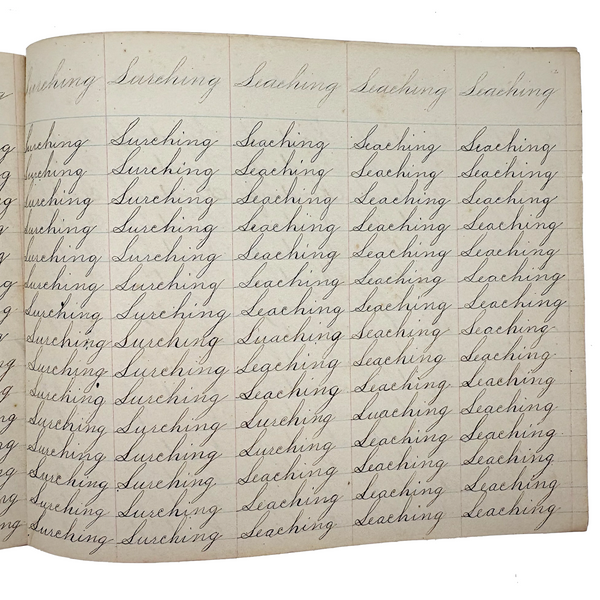 Lurching Lurching Leaching Leaching Leaching
Lurching Lurching Leaching Leaching Leaching
Lurching Lurching Leaching Leaching Leaching
Lurching Lurching Leaching Leaching Leaching
Lurching Lurching Leaching Leaching Leaching
Lurching Lurching Leaching Leaching Leaching
Lurching Lurching Leaching Leaching Leaching
Lurching Lurching Leaching Leaching Leaching
Lurching Lurching Luaching Leaching Leaching
Lurching Lurching Leaching Leaching Leaching
Lurching Lurching Leaching Leaching Leaching
Lurching Lurching Lurching Luaching Leaching
Lurching Lurching Lurching Leaching Leaching
Lurching Lurching Leaching Leaching Leaching
Lurching Lurching Leaching Leaching Leaching
Lurching Lurching Leaching Leaching Leaching